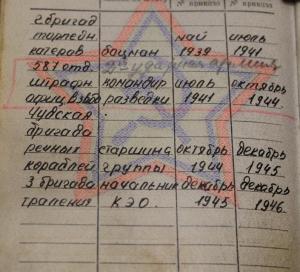 № приказа № приказа
2 бригад
торпедн. май июль
катеров боцман 1939 1941
587 отд. 2-я ударная армия
штрафн. командир июль октябрь
офиц. взвод разведки 1941 1944
Чудская
бригада
речных старшина октябрь декабрь
кораблей группы 1944 1945
3 бригада начальник декабрь декабрь
траления КЭО. 1945 1946